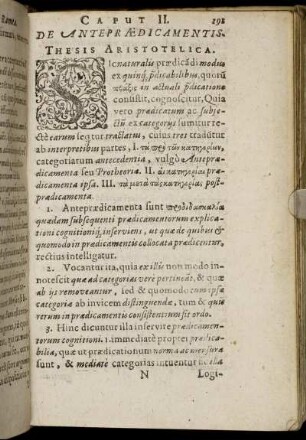 CAPUT II.
DE ANTEPRÆDICAMENTIS.
THESIS ARISTOTELICA.
Sic naturalis prædicãdi modus
ex quinq; p̃dicabilibus, quorũ
in actuali p̃dicatione
consistit, cognoscitur. Quia
vero prædicatum ac subje-
ctũ ex categoriis sumitur re-
ctè earum seqitur tractatus, cuius tres tradũtur
ab interpretibus partes, I. τὰ πρὸ τῶν κατηγοριῶν,
categoriatum antecedentia, vulgò Antepræ-
dicamenta seu Protheoria. II. αἱ κατηγορίαι præ-
dicamenta ipsa. III. τὰ μετὰ τὰς κατηγορίας post-
prædicamenta.
1. Anteprædicamenta sunt
quædam subsequenti prædicamentorum explicati
cognitioniq́; inservientia, ut quæ de quibus &
quomodo in prædicamentis collocata prædicentur,
rectius intelligatur.
2. Vocantur ita, quia ex illis non modo in-
notescit quæ ad categorias vere pertineãt, & quæ
ab iis removeantur, sed & quomodo cum ipsæ
categoriæ ab invicem distinguendæ, tum & quis
rerum in prædicamentis consistentium sit ordo.
3. Hinc dicuntur illa inservire prædicamen-
torum cognitioni. 1. immediatè propter prædica-
bilia, quæ ut prædicationum norma ac mensura
sunt, & mediatè categorias intuentur
N Logi-